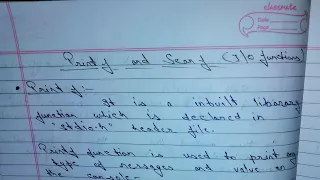 classmate
Date
Page
Printf and Scanf (I/O functions)
• Printf:-
It is a inbuilt library
function which is declared in
"stdio.h" header file.
Printf function is used to print any
type of messages and value on
the console.